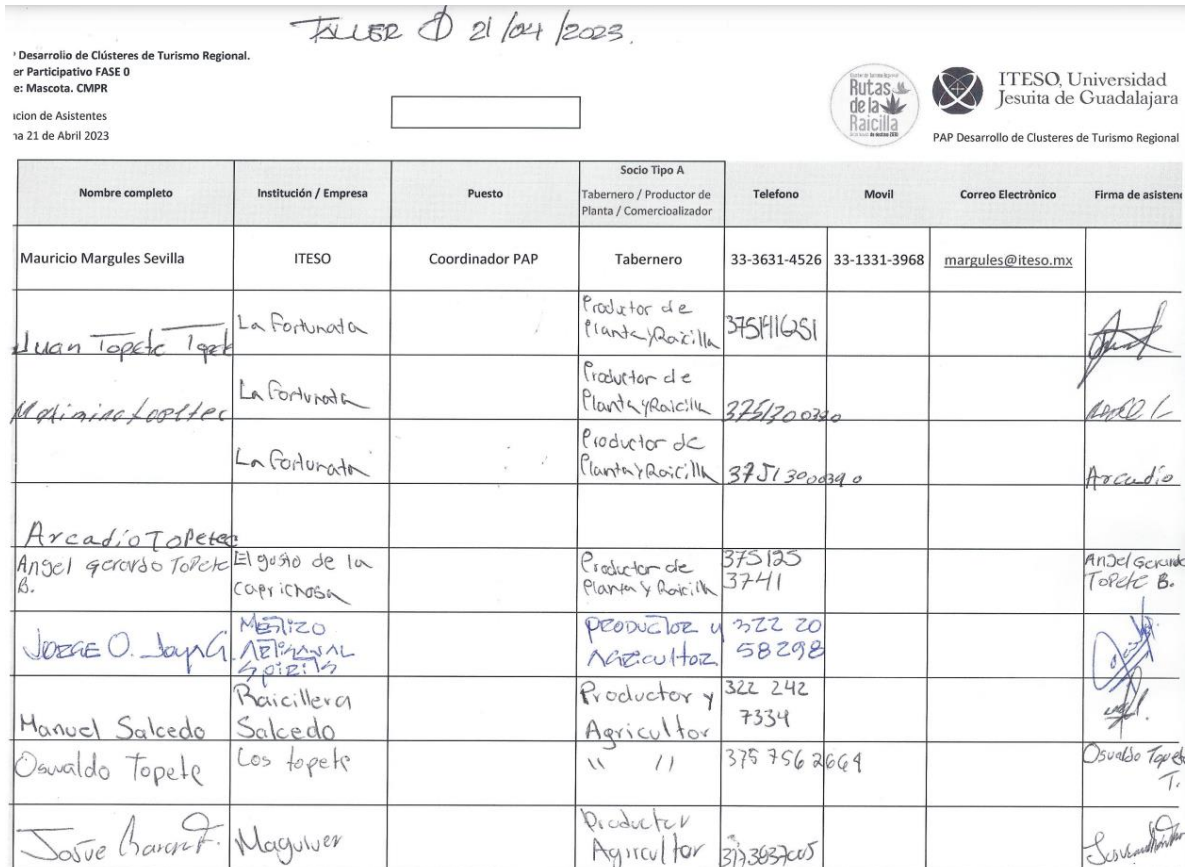 TALLER 21/04/2023.
Desarrollo de Clústeres de Turismo Regional.
er Participativo FASE 0
e: Mascota. CMPR
acion de Asistentes
na 21 de Abril 2023
Rutas
de la
Raicilla
ITESO, Universidad
Jesuita de Guadalajara
PAP Desarrollo de Clusteres de Turismo Regional
Nombre completo
Institución / Empresa
Puesto
Socio Tipo A
Tabernero / Productor de
Planta / Comercioalizador
Telefono
Movil
Correo Electrònico
Firma de asisten
Mauricio Margules Sevilla
ITESO
Coordinador PAP
Tabernero
33-3631-4526
33-1331-3968
margules@iteso.mx
Juan Topete
La Fortunata
Productor de
Planta y Raicilla
La Fortunata
Productor de
Planta y Raicilla
La Fortunata
Productor de
Planta y Raicilla
Arcadio
Arcadio Topete
Angel Gerardo Topete
B.
El gusto de la
Caprichosa
Productor de
Planta y Raicilla
375125
3741
Angel Gerardo
Topete B.
JORGE O.
MESTIZO
ARTESANAL
SPIRITS
PRODUCTOR y
AGRICULTOR
322 20
58298
Manuel Salcedo
Raicillera
Salcedo
Productor y
Agricultor
322 242
7334
Osvaldo Topete
Los topete
" "
375 756 2669
Osvaldo Topete
T.
Josue
Maguluer
Productor
Agricultor